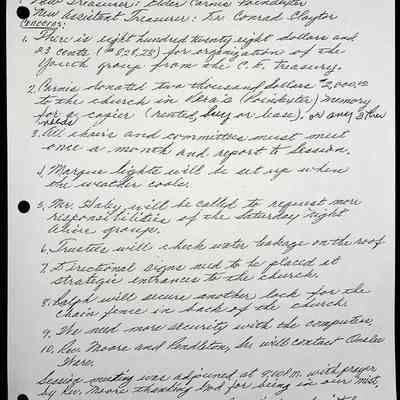 New Treasurer: Elder Carnie Poindexter
New Assistant Treasurer: Dr. Conrad Claytor
Concerns:
1. There is eight hundred twenty eight dollars and
23 cents for organization of the
Youth group from the C.E. Treasury.
2. Carnie donated two thousand dollars $2,000.00
to the church in Vera's (Poindexter) memory
for a copier (rented, buy or lease), or any other
needs
3. All chairs and committees must meet
once a month and report to Session.
4. Marque lights will be set up when
the weather cools.
5. Mr. Haley will be called to request more
responsibilities of the Saturday night
Alive group.
6. Trustees will check water leakage on the roof
7. Directional signs need to be placed at
strategic entrances to the church.
8. Ralph will secure another lock for the
chain fence in back of the church.
9. We need more security with the computer.
10. Rev. Moore and Pendleton, Sr. will contact
Ware.
Session meeting was adjourned at 9:00 P.M. with prayer
by Rev. Moore thanking God for being in our midst.